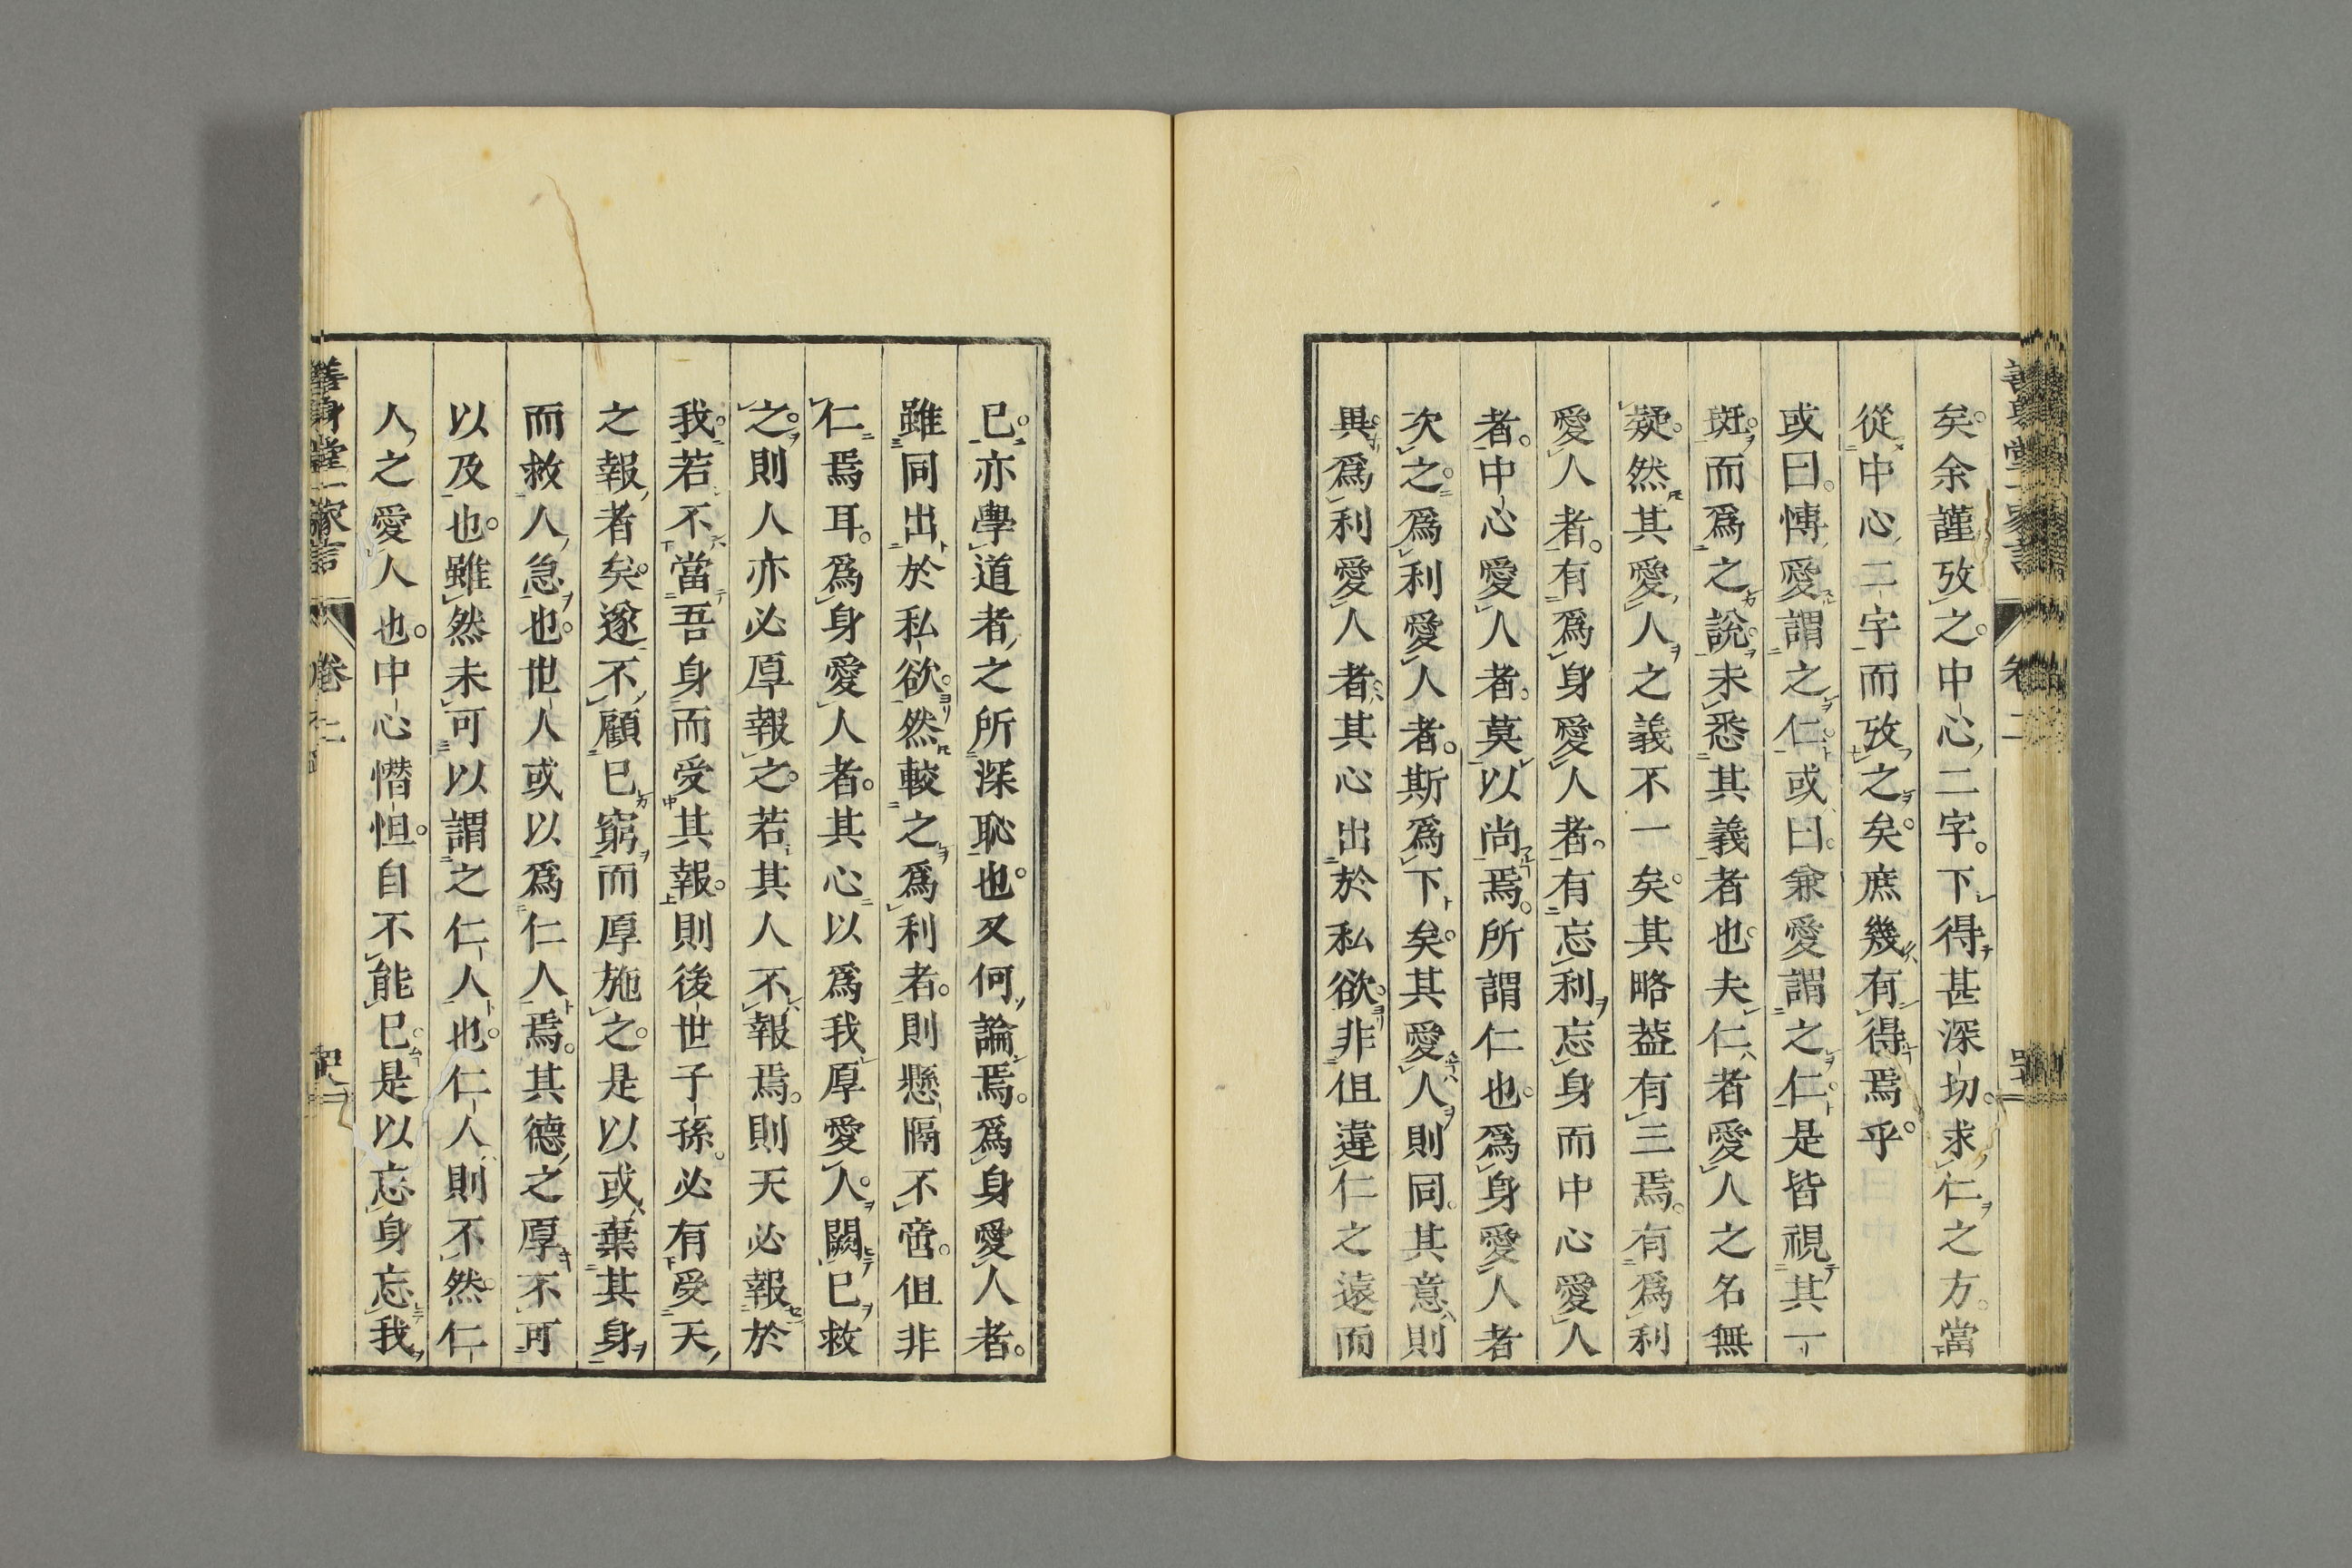 矣。余謹攷之。中心二字。下得甚深切。求仁之方。當
從中心二字而攷之矣。庶幾有得焉乎。
或曰。愽愛謂之仁。或曰。兼愛謂之仁。是皆視其一
斑。而爲之說。未悉其義者也。夫仁者愛人之名無
疑。然其愛人之義不一矣。其略葢有三焉。有爲利
愛人者。有爲身愛人者。有忘利忘身而中心愛人
者。中心愛人者。莫以尚焉。所謂仁也。爲身愛人者
次之。爲利愛人者。斯爲下矣。其愛人則同。其意則
異。爲利愛人者。其心出於私欲。非但違仁之遠而
已。亦學道者之所深恥也。又何論焉。爲身愛人者。
雖同出於私欲。然較之爲利者。則懸隔不啻。但非
仁焉耳。爲身愛人者。其心以爲我厚愛人。闕已救
之。則人亦必厚報之。若其人不報焉。則天必報於
我。若不當吾身而受其報。則後世子孫。必有受天
之報者矣。遂不顧已窮而厚施之。是以或棄其身
而救人急也。世人或以爲仁人焉。其德之厚不可
以及也。雖然未可以謂之仁人也。仁人則不然。仁
人之愛人也。中心憯怛。自不能已。是以忘身忘我
善身堂一家言
卷二